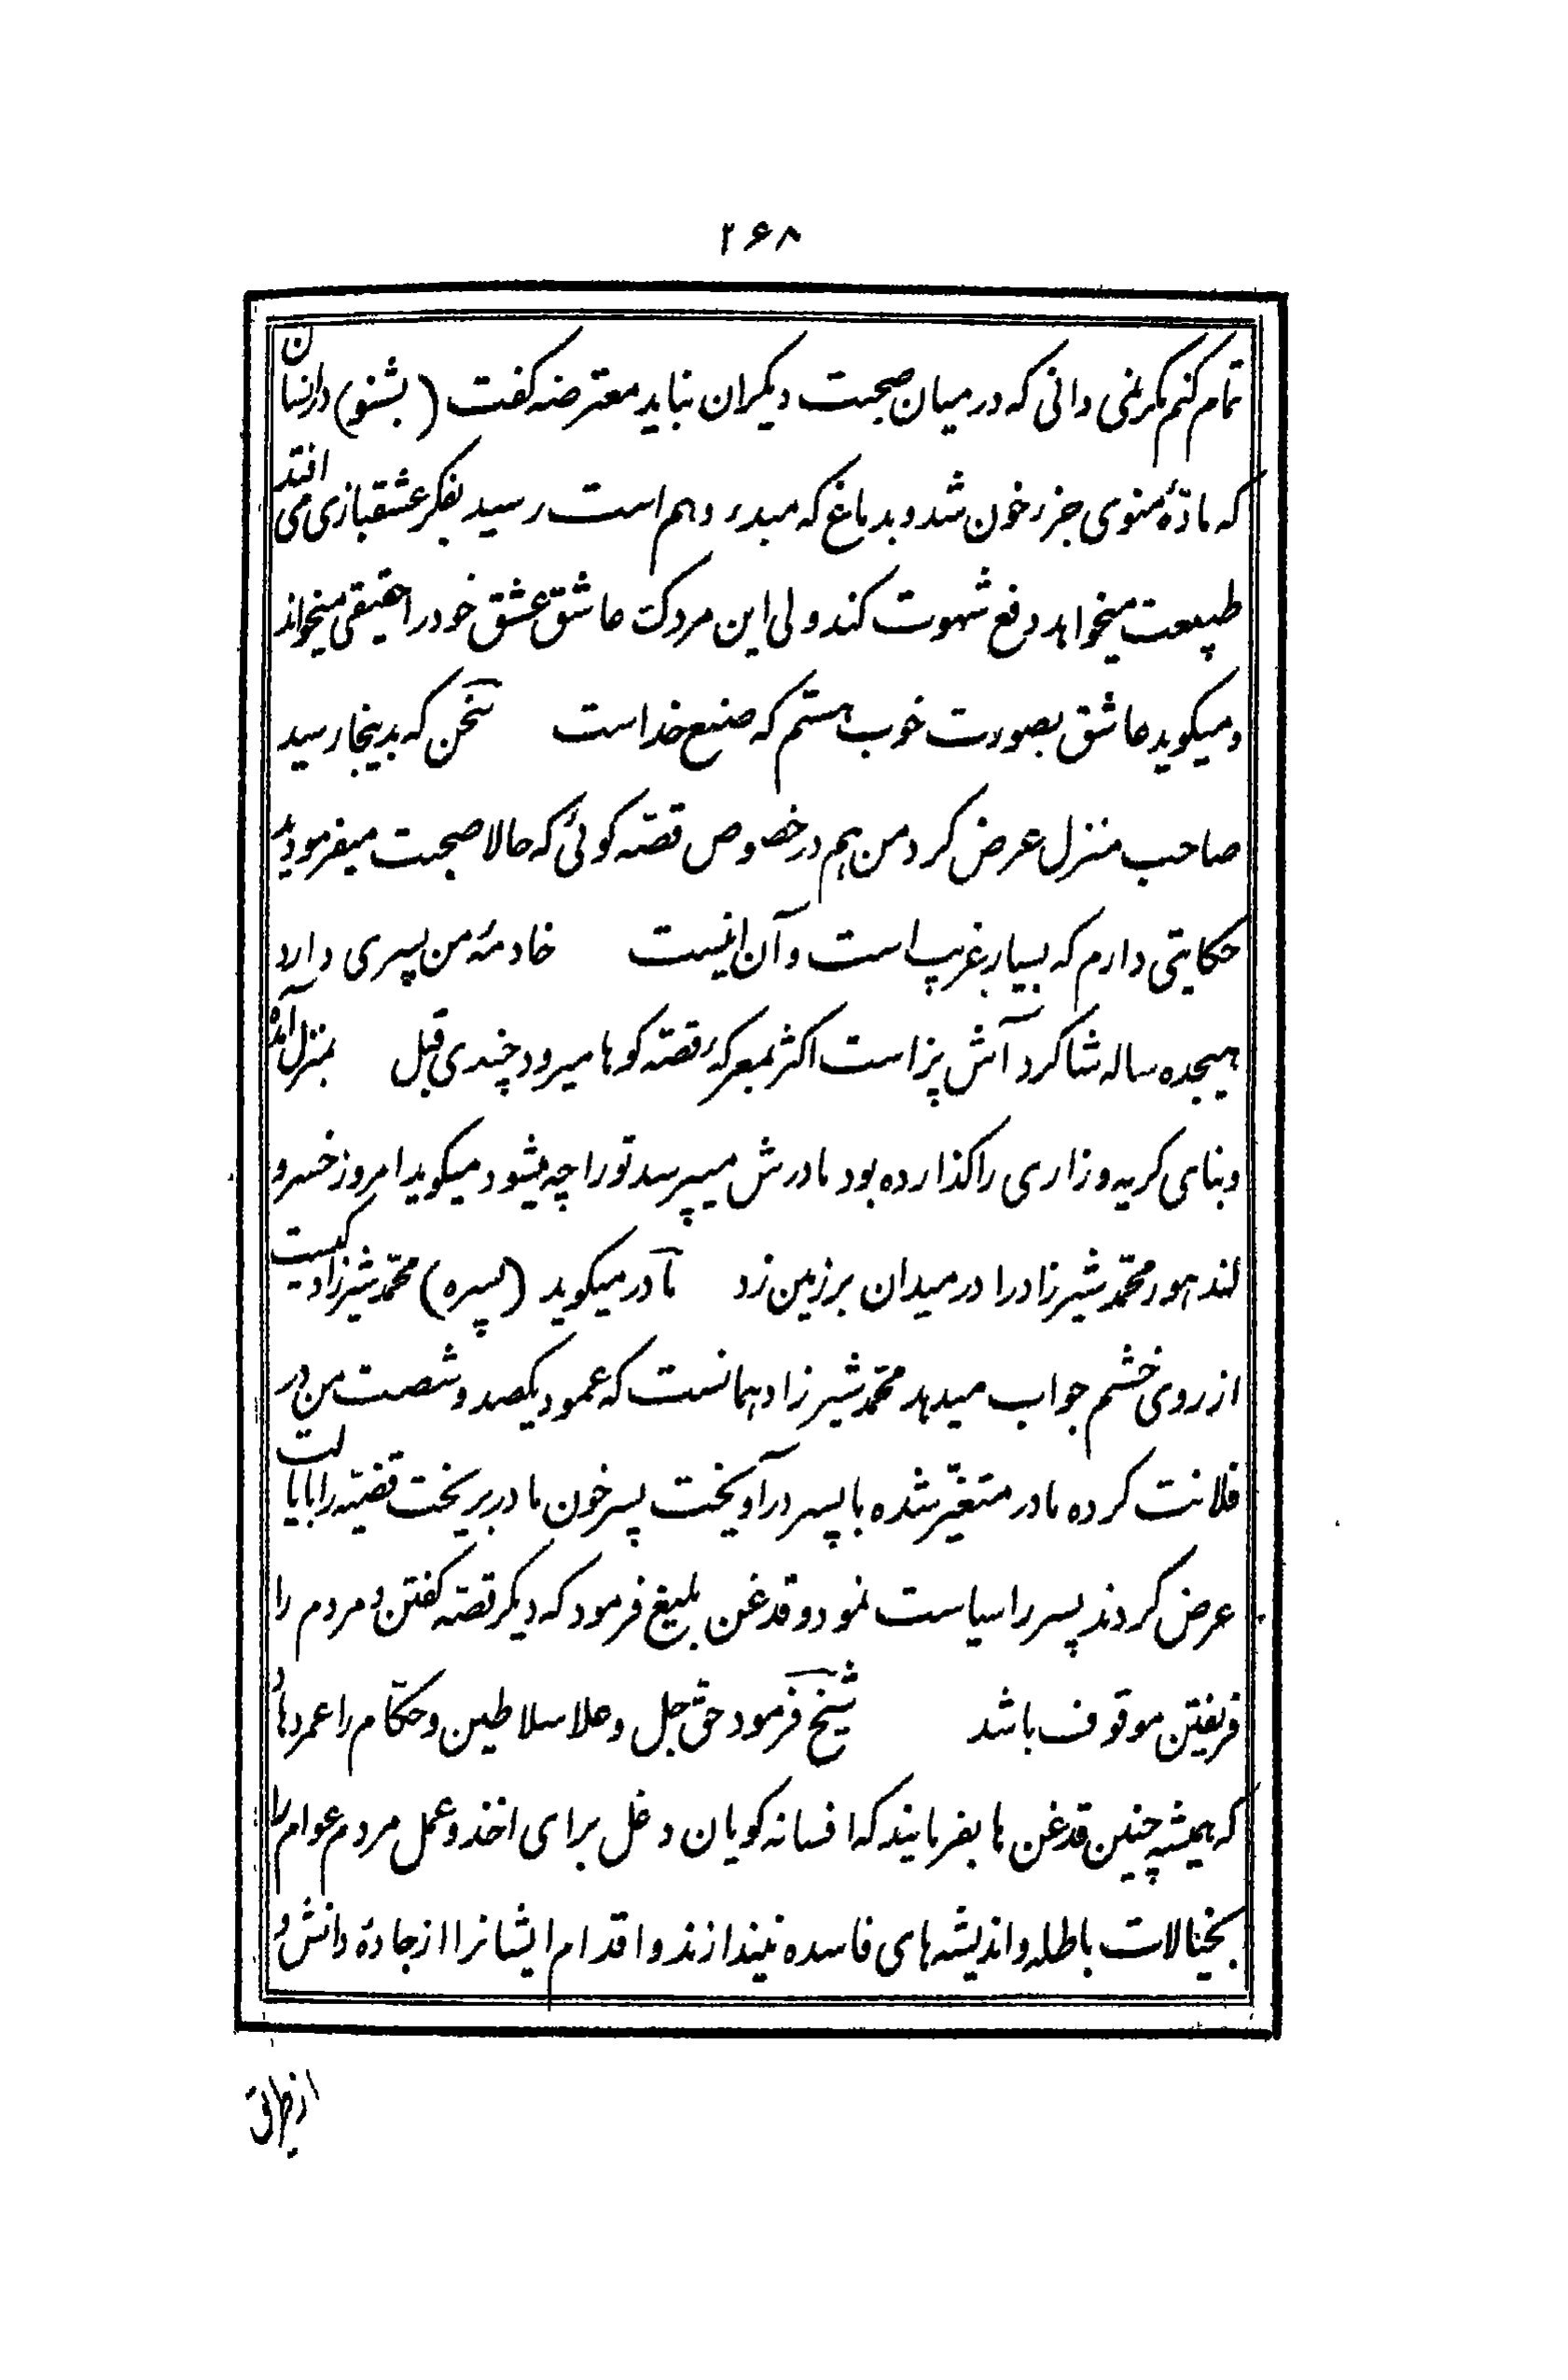 ۲۶۸
تمام کنم مگر نمی دانی که در میان صحبت دیگران نباید معترضه گفت (بشنو) در انسان
که مادّهٔ منوی جزء خون شد و بدماغ که مبدء وهم است رسید بفکر عشقبازی می افتد
طبیعت میخواهد دفع شهوت کند ولی این مردک عاشق عشق خود را حقیقی میخواند
و میگوید عاشق بصورت خوب هستم که صنع خداست    سخن که بدینجا رسید
صاحب منزل عرض کرد من هم در خصوص قصّه گوئی که حالا صحبت میفرمودید
حکایتی دارم که بسیار غریب است و آن اینست    خادمهٔ من پسری دارد
هیجده ساله شاگرد آش پز است اکثر بمعرکهٔ قصّه گوها میرود چندی قبل    بمنزل آمده
و بنای گریه و زاری را گذارده بود مادرش میپرسد تو را چه میشود میگوید امروز خسرو
لندهور محمّد شیرزاد را در میدان بر زمین زد    مادر میگوید (پسره) محمّد شیرزاد کیست
از روی خشم جواب میدهد محمّد شیرزاد همانست که عمود یکصد و شصت من در
فلانت کرده مادر متغیّر شده با پسر در آویخت پسر خون مادر بریخت قضیّه را بایالت
عرض کردند پسر را سیاست نمود و قدغن بلیغ فرمود که دیگر قصّه گفتن و مردم را
فریفتن موقوف باشد    شیخ فرمود حقّ جل و علا سلاطین و حکّام را عمر دهاد
که همیشه چنین قدغن ها بفرمایند که افسانه گویان دغل برای اخذ و عمل مردم عوام را
بخیالات باطله و اندیشه های فاسده نیندازند و اقدام ایشانرا از جادهٔ دانش و
از طرق